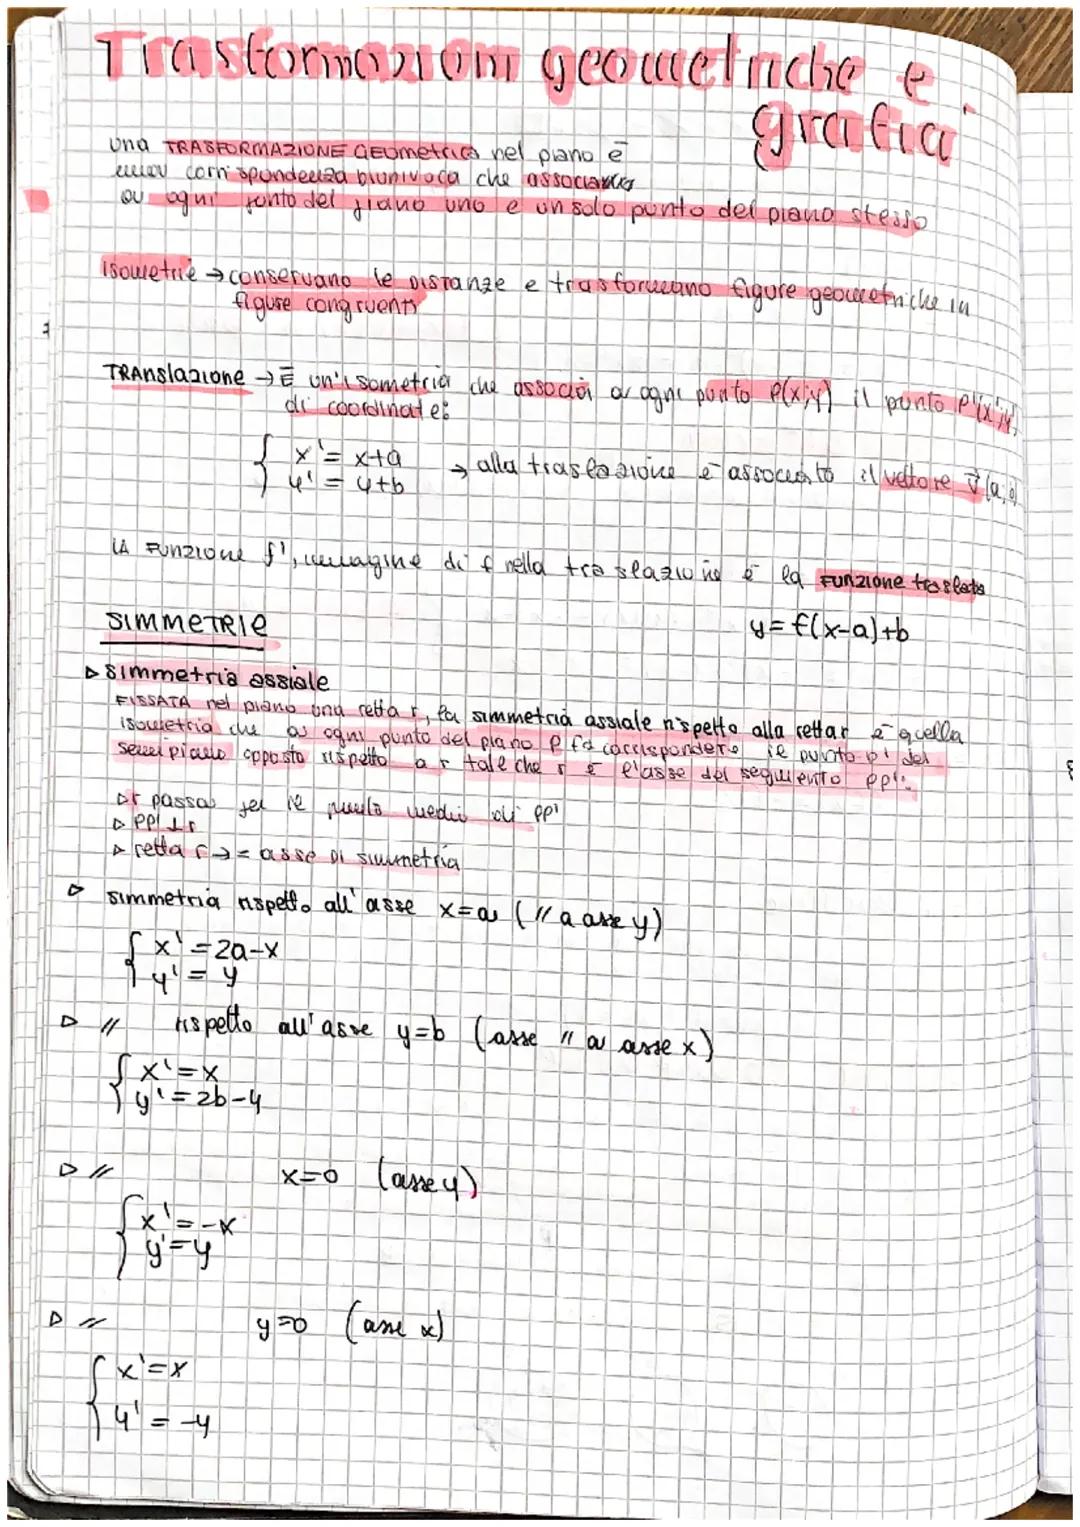 Trasformazioni geometriche e
grafici
una TRASFORMAZIONE GEOMETRICA nel piano è
una corrispondenza biunivoca che associa
a ogni punto del piano uno e un solo punto del piano stesso
Isometrie → conservano le DISTANZE e trasformano figure geometriche in
figure congruenti
TRANslazione → È un'isometria che associa a ogni punto P(x;y) il punto P'(x';y')
di coordinate:
{ x' = x+a
y' = y+b
→ alla traslazione è associato il vettore v⃗ (a;b)
LA FUNZIONE f', immagine di f nella traslazione è la FUNZIONE traslata
y = f(x-a)+b
SIMMETRIE
▷ simmetria assiale
FISSATA nel piano una retta r, la simmetria assiale rispetto alla retta r è quella
isometria che a ogni punto del piano P fa corrispondere il punto P' del
semipiano opposto rispetto a r tale che r è l'asse del segmento PP':
▷ r passa per il punto medio di PP'
▷ PP' ⊥ r
▷ retta r → = asse DI simmetria
▷ simmetria rispetto all'asse x=a ( // a asse y)
{ x' = 2a-x
y' = y
▷ // rispetto all'asse y=b (asse // a asse x)
{ x' = x
y' = 2b-y
▷ // x=0 (asse y)
{ x' = -x
y' = y
▷ // y=0 (asse x)
{ x' = x
y' = -y